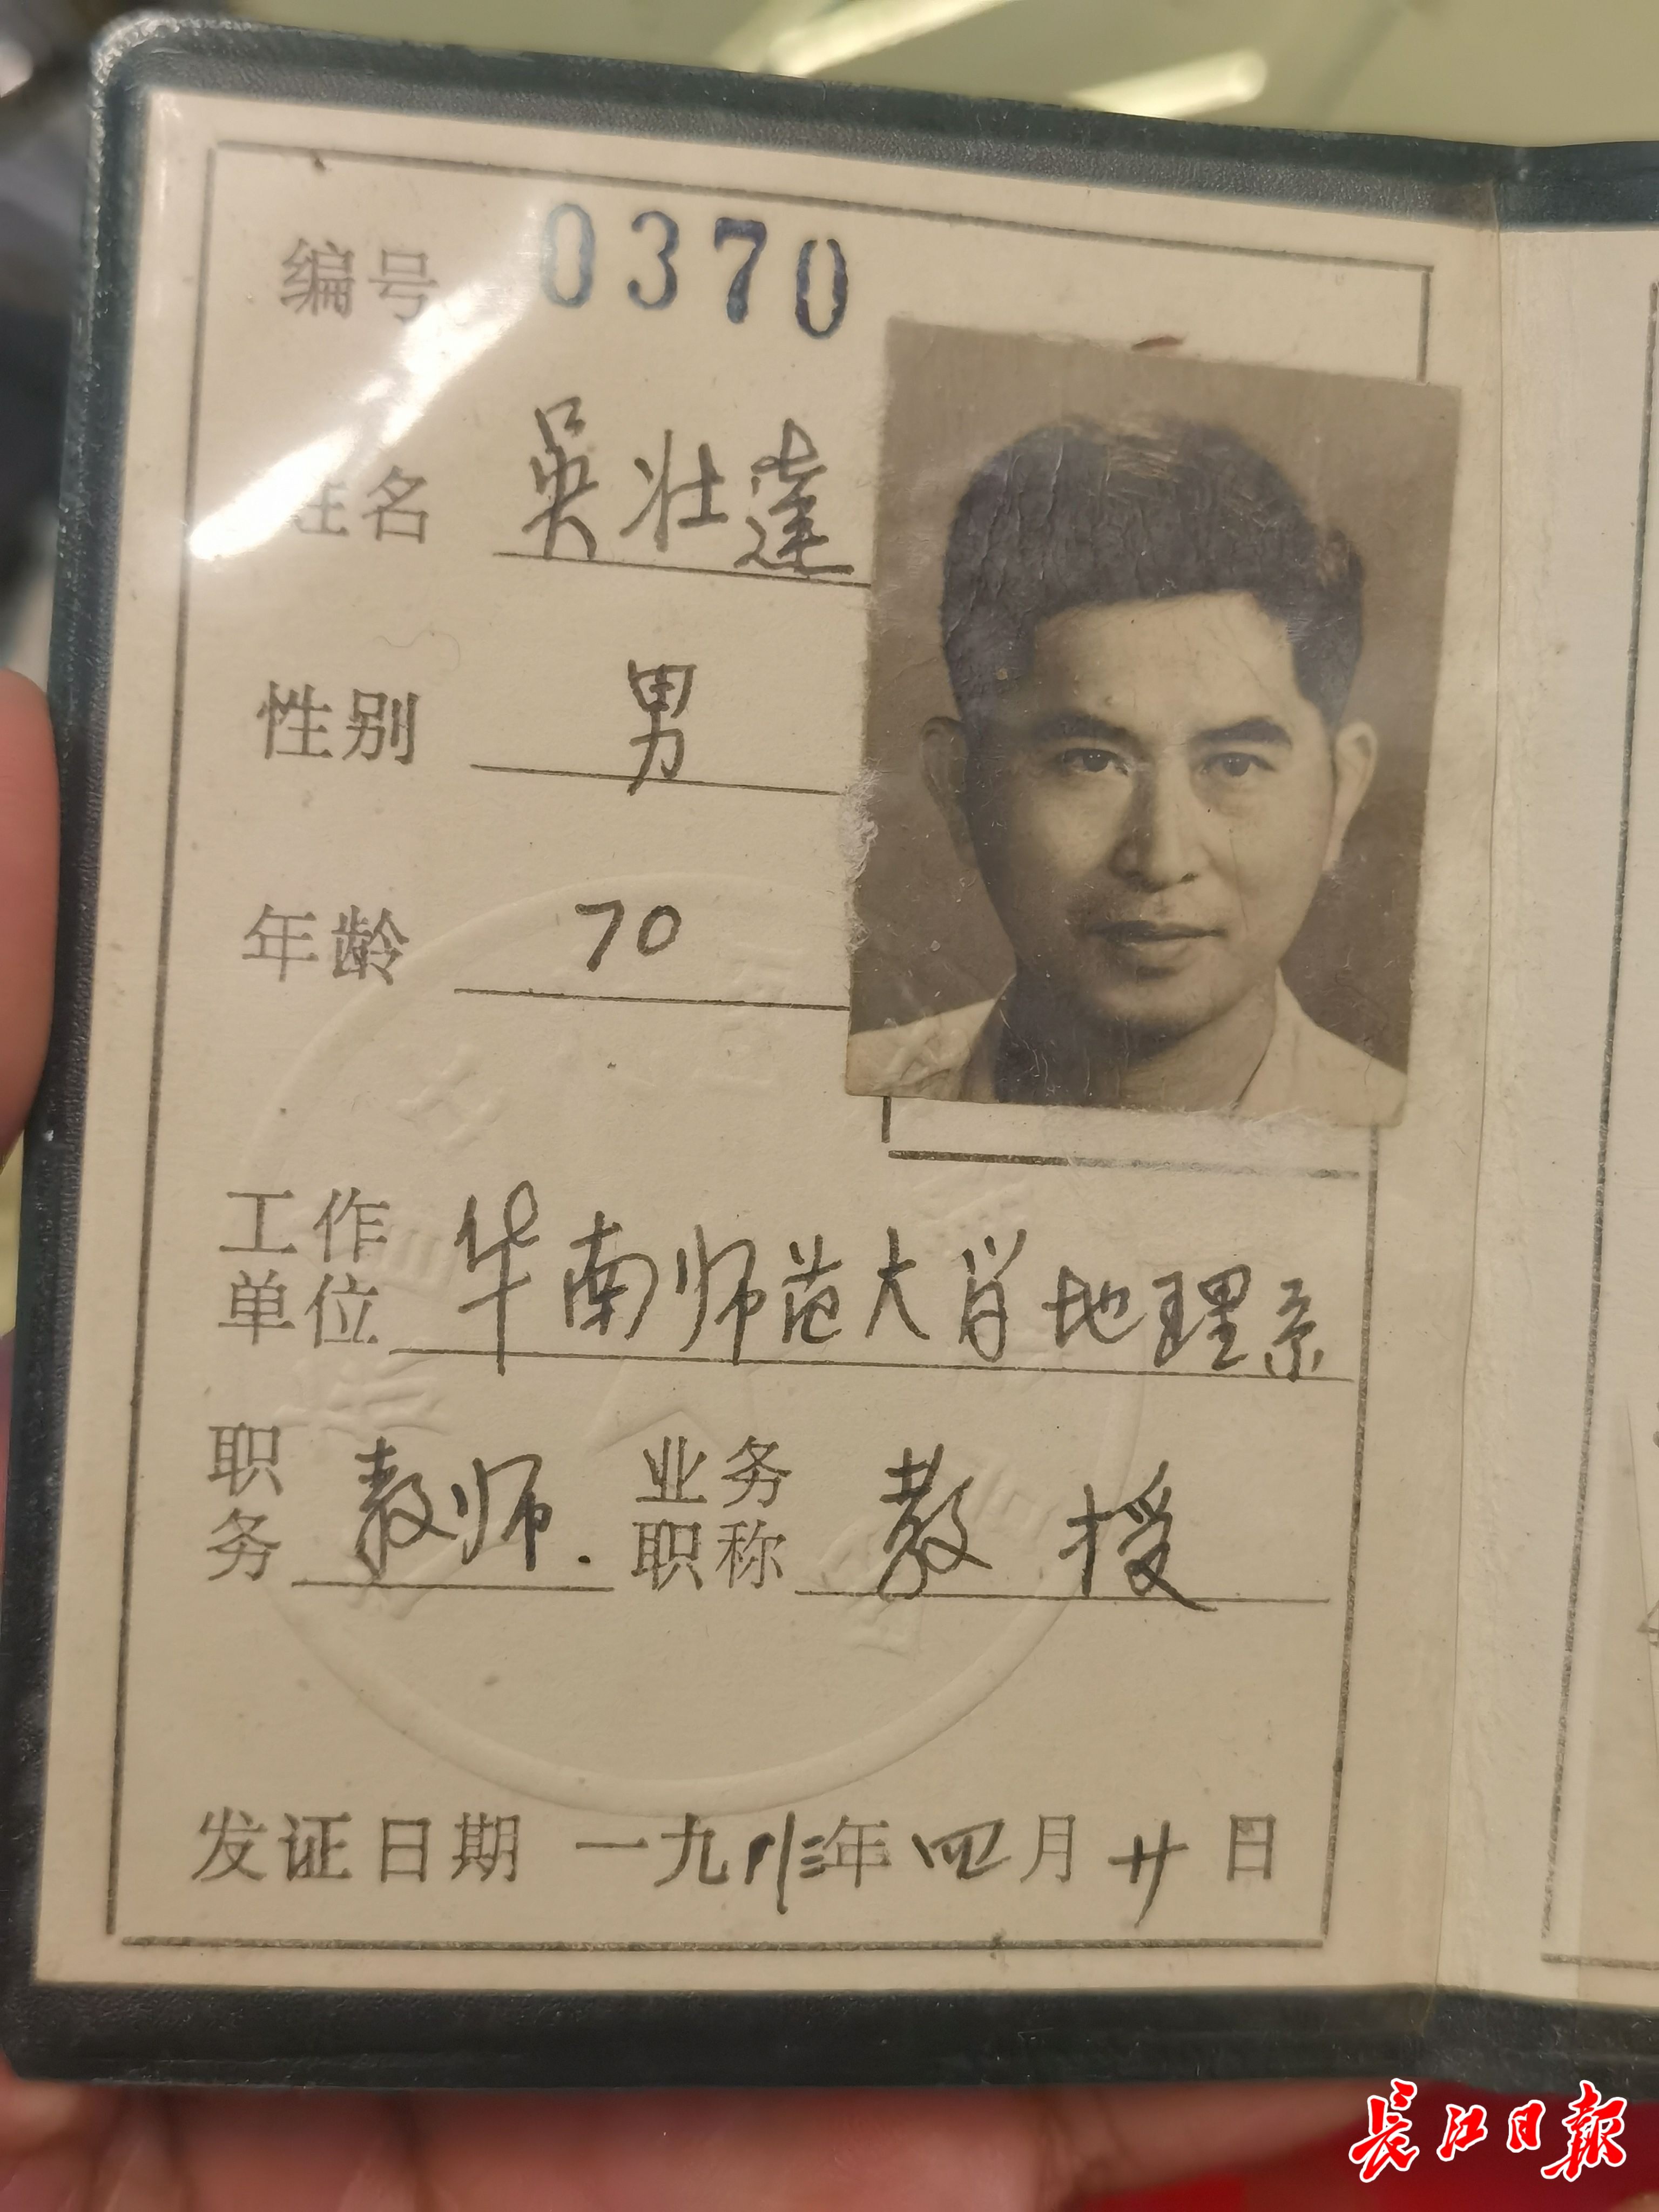 编号 0370
姓名 吳壮達
性别 男
年龄 70
工作单位 华南师范大学地理系
职务 教师. 业务职称 教授
发证日期 一九八三年四月廿日
长江日报